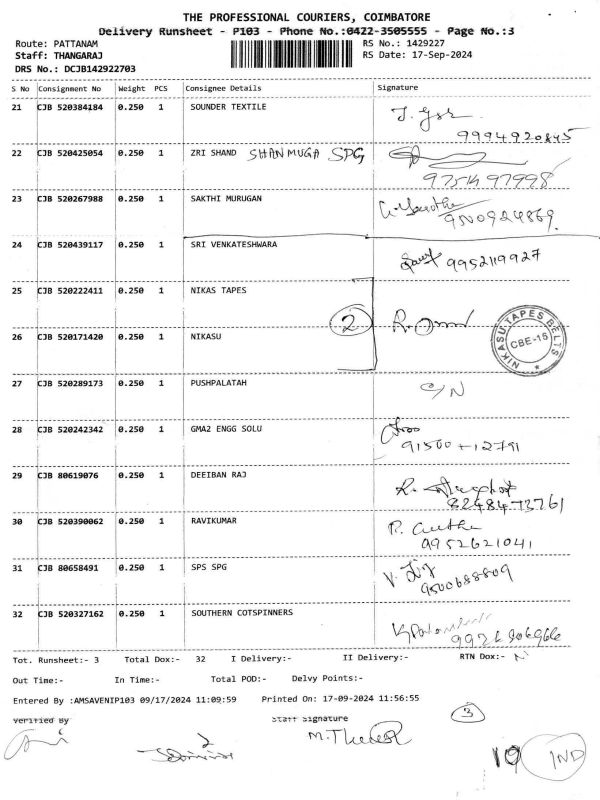 THE PROFESSIONAL COURIERS, COIMBATORE
Delivery Runsheet - P103 - Phone No.:0422-3505555 - Page No.:3
Route: PATTANAM
RS No.: 1429227
Staff: THANGARAJ
RS Date: 17-Sep-2024
DRS No.: DCJB142922703
S No Consignment No Weight PCS Consignee Details Signature
21 CJB 520384184 0.250 1 SOUNDER TEXTILE
9994920845
22 CJB 520425054 0.250 1 ZRI SHAND SHANMUGA SPG
23 CJB 520267988 0.250 1 SAKTHI MURUGAN
9500924869
24 CJB 520439117 0.250 1 SRI VENKATESHWARA
9952119927
25 CJB 520222411 0.250 1 NIKAS TAPES
2
NIKASU TAPES BELTS
CBE-16
26 CJB 520171420 0.250 1 NIKASU
27 CJB 520289173 0.250 1 PUSHPALATAH
C/N
28 CJB 520242342 0.250 1 GMA2 ENGG SOLU
29 CJB 80619076 0.250 1 DEEIBAN RAJ
30 CJB 520390062 0.250 1 RAVIKUMAR
9952621041
31 CJB 80658491 0.250 1 SPS SPG
9500688809
32 CJB 520327162 0.250 1 SOUTHERN COTSPINNERS
Tot. Runsheet:- 3 Total Dox:- 32 I Delivery:- II Delivery:- RTN Dox:-
Out Time:- In Time:- Total POD:- Delvy Points:-
Entered By :AMSAVENIP103 09/17/2024 11:09:59 Printed On: 17-09-2024 11:56:55
Verified By Staff Signature
3
19 IND